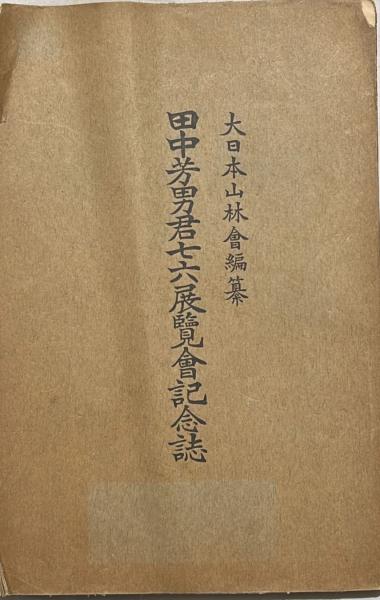 大日本山林會編纂
田中芳男君七六展覽會記念誌